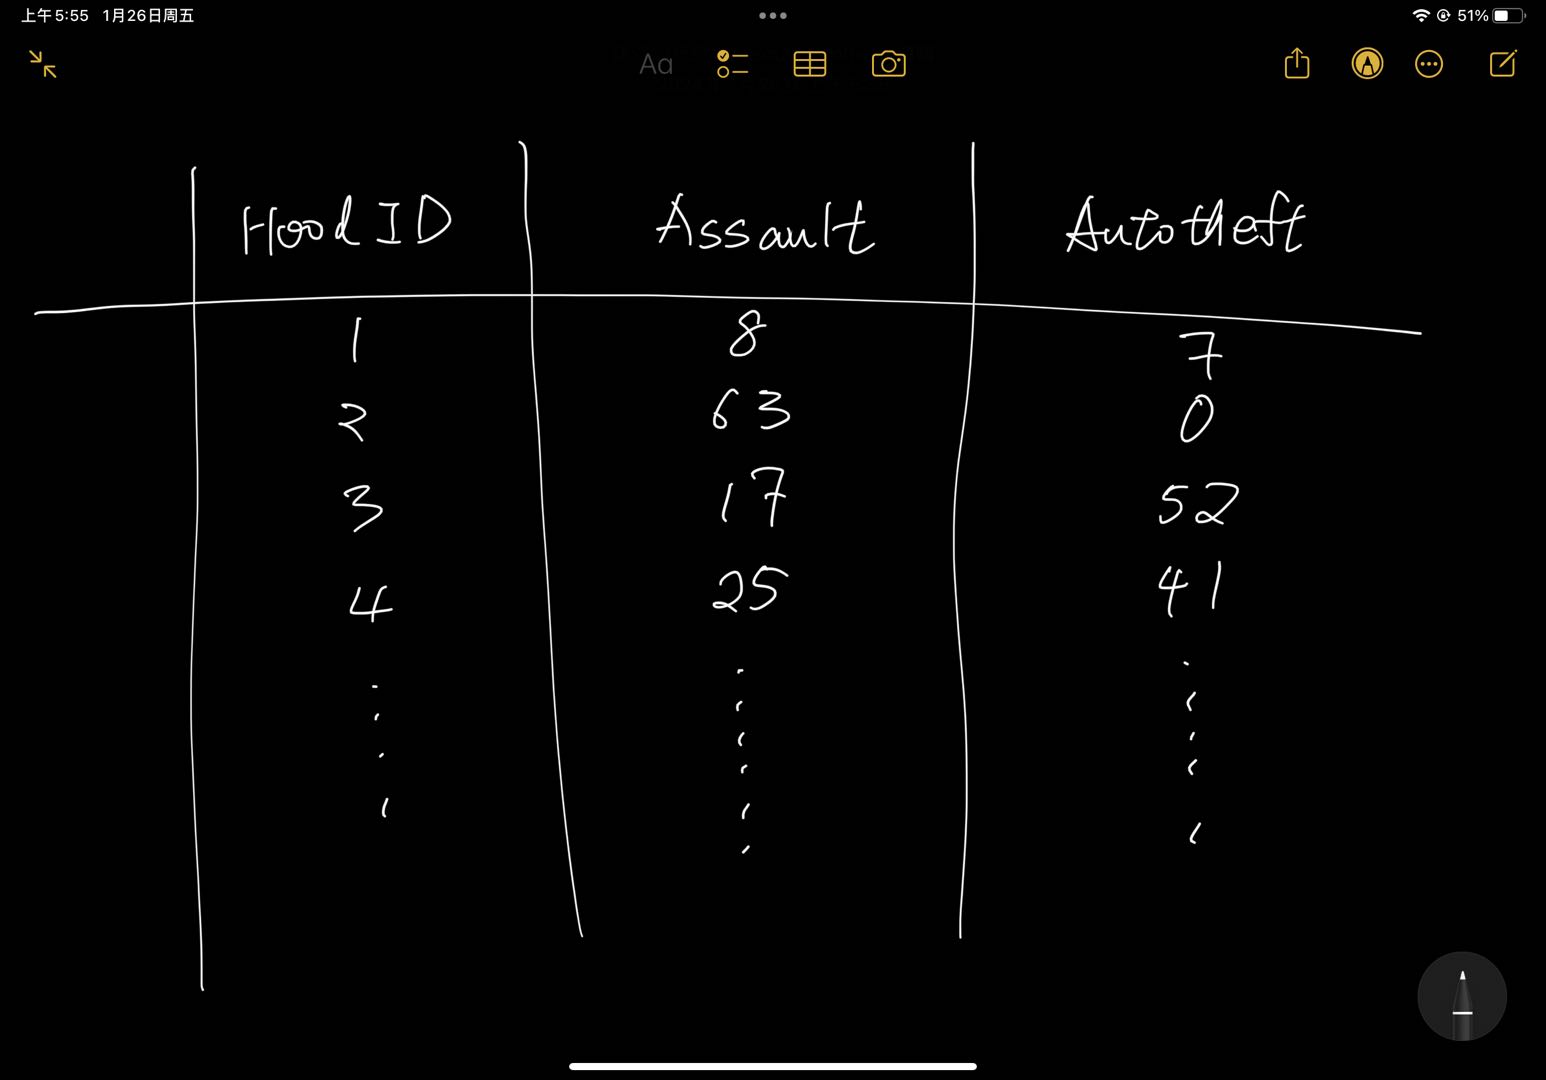 上午5:55 1月26日周五 51%
Aa
Hood ID Assault Autotheft
1 8 7
2 63 0
3 17 52
4 25 41